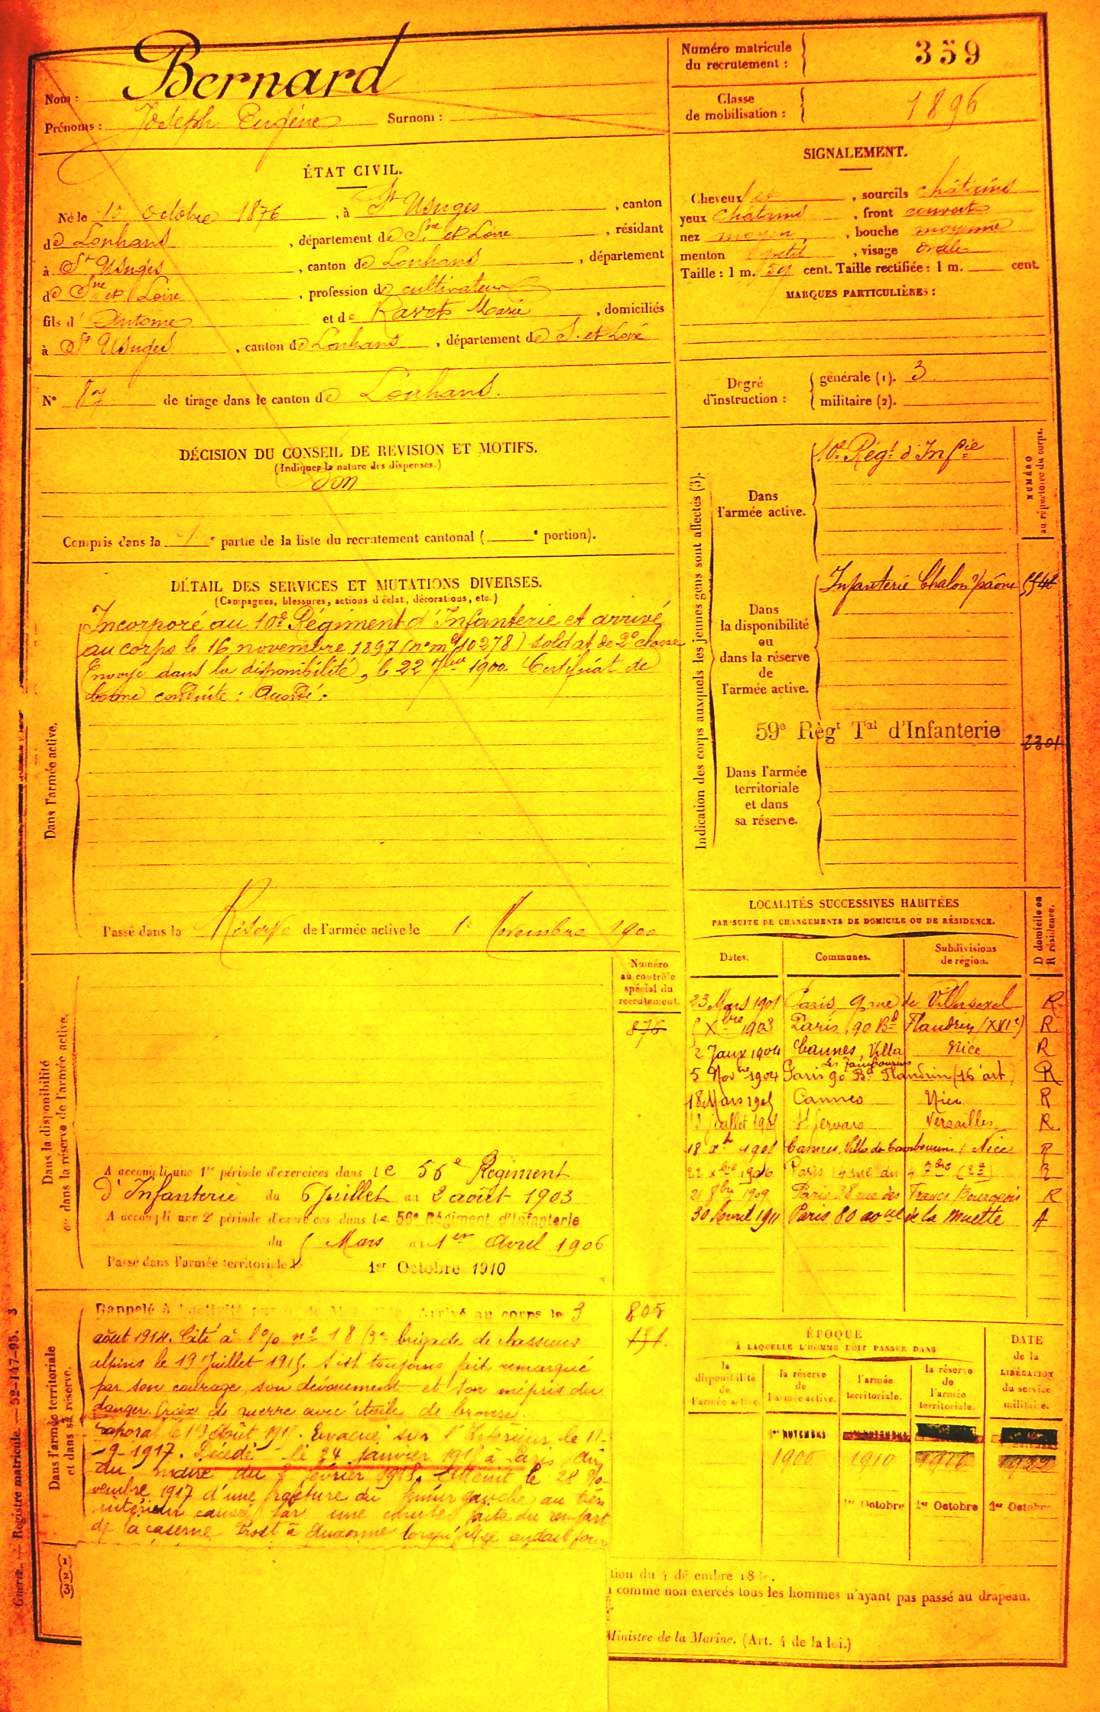 Nom : Bernard
Prénoms : Joseph Eugène Surnom :
Numéro matricule
du recrutement : 359
Classe
de mobilisation : 1896
ÉTAT CIVIL.
Né le octobre 1876, à St Usuges, canton
de Louhans, département de Sne et Loire, résidant
à St Usuges, canton de Louhans, département
de Sne et Loire, profession de cultivateur
fils d' Antoine et de Marie, domiciliés
à St Usuges, canton de Louhans, département de S. et Loire
N° 87 de tirage dans le canton de Louhans.
SIGNALEMENT.
Cheveux, sourcils châtains
yeux châtains, front couvert
nez moyen, bouche moyenne
menton petit, visage ovale
Taille : 1 m. 59 cent. Taille rectifiée : 1 m. cent.
MARQUES PARTICULIÈRES :
Degré
d'instruction :
générale (1). 3
militaire (2).
DÉCISION DU CONSEIL DE REVISION ET MOTIFS.
(Indiquer la nature des dispenses.)
Bon
Compris dans la 1e partie de la liste du recrutement cantonal ( e portion).
DÉTAIL DES SERVICES ET MUTATIONS DIVERSES.
(Campagnes, blessures, actions d'éclat, décorations, etc.)
Dans l'armée active.
Incorporé au 10e Régiment d'Infanterie et arrivé
au corps le 16 novembre 1897 (n° mle 10278) soldat de 2e classe
Envoyé dans la disponibilité, le 22 7bre 1900. Certificat de
bonne conduite : Accordé.
Passé dans la Réserve de l'armée active le 1er Novembre 1900
Indication des corps auxquels les jeunes gens sont affectés (3).
NUMÉRO
au répertoire du corps.
Dans
l'armée active.
10e Régt d'Infie
Dans
la disponibilité
ou
dans la réserve
de
l'armée active.
Infanterie Chalon s/ Saône
59e Règt Tal d'Infanterie
2301
Dans l'armée
territoriale
et dans
sa réserve.
LOCALITÉS SUCCESSIVES HABITÉES
PAR SUITE DE CHANGEMENTS DE DOMICILE OU DE RÉSIDENCE.
D domicile ou
R résidence.
Dates. Communes. Subdivisions
de région.
23 Mars 1901 Paris 9 rue de Villersexel R
Xbre 1903 Paris 90 Bd Flandrin (XVIe) R
2 Janv 1904 Cannes, Villa Nice R
les Tambourins
5 Novbre 1904 Paris 90 Bd Flandrin (16e arrt) R
18 Mars 1905 Cannes Nice R
Juillet St Gervais Versailles R
18 Xbre Cannes, Villa Nice R
22 Xbre 1906 Paris rue du 4 7bre R
21 8bre 1909 Paris 38 rue des Francs Bourgeois R
30 Avril 1911 Paris 80 de la Muette
Dans la disponibilité
ou dans la réserve de l'armée active.
Numéro
au contrôle
spécial du
recrutement.
876
A accompli une 1re période d'exercices dans le 56e Régiment
D'Infanterie du 6 Juillet au 2 août 1903
A accompli une 2e période d'exercices dans le 56e Régiment d'Infanterie
du 5 Mars au 1er Avril 1906
Passé dans l'armée territoriale le 1er Octobre 1910
Dans l'armée territoriale
et dans sa réserve.
805
Rappelé à l'activité Arrivé au corps le 3
août 1914. Cité à l'o/o n° 18 3e brigade de chasseurs
alpins le 19 Juillet 1915. S'est toujours fait remarqué
par son courage, son dévouement et son mépris du
danger. Croix de guerre avec étoile de bronze.
Caporal le Août. Evacué sur l'Intérieur le 11-
9-1917. Décédé le 24 janvier 1918 à
du maire du février 1918. Atteint le 28
vembre 1917 d'une fracture du fémur gauche au tiers
inférieur causée par une chute faite du rempart
de la caserne à Auxonne lorsqu'il
ÉPOQUE
À LAQUELLE L'HOMME DOIT PASSER DANS
la
disponibilité
de
l'armée active.
la réserve
de
l'armée active.
l'armée
territoriale.
la réserve
de
l'armée
territoriale.
DATE
de la
LIBÉRATION
du service
militaire.
1er NOVEMBRE
1900 1910
1er Octobre 1er Octobre 1er Octobre
tion du 4 décembre
comme non exercés tous les hommes n'ayant pas passé au drapeau.
Ministre de la Marine. (Art. 4 de la loi.)
Registre matricule. — 52-147-95. 3
(1)
(2)
(3)